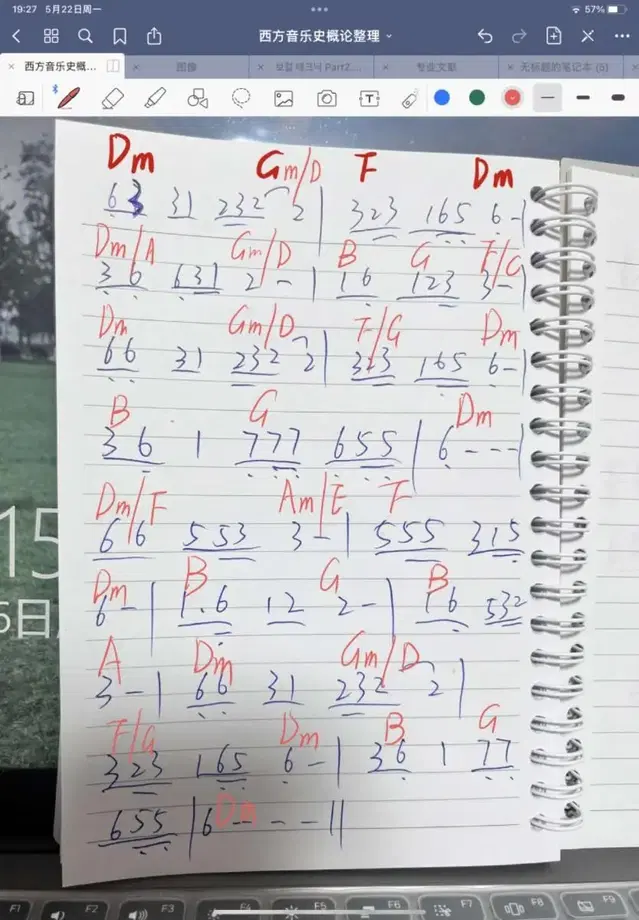 19:27 5月22日周一
57%
西方音乐史概论整理
西方音乐史概... 图像 보컬 테크닉 Part2.... 专业文献 无标题的笔记本 (5)
Dm Gm/D F Dm
63 31 232 2 | 323 165 6 - |
Dm/A Gm/D B G F/C
36 631 2 - | 16 123 3 - |
Dm Gm/D F/G Dm
66 31 232 2 | 323 165 6 - |
B G Dm
36 1 777 655 | 6 - - - |
Dm/F Am/E F
66 553 3 - | 555 315
Dm B G B
6 - | 1.6 12 2 - | 16 532
A Dm Gm/D
3 - | 66 31 232 2 |
F/G Dm B G
323 165 6 - | 36 1 77
Dm
655 | 6 - - - ||
15
6日
F1 F2 F3 F4 F5 F6 F7 F8 F9